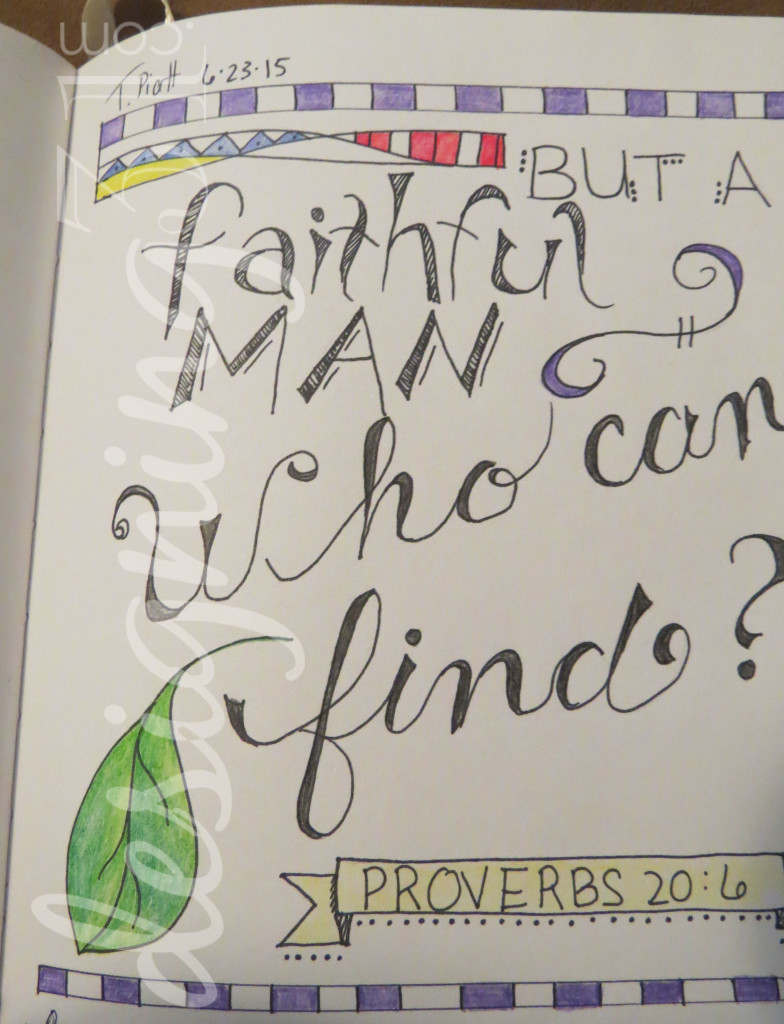 T. Piatt 6·23·15
BUT A
faithful
MAN
who can
find?
PROVERBS 20:6
designing31.com